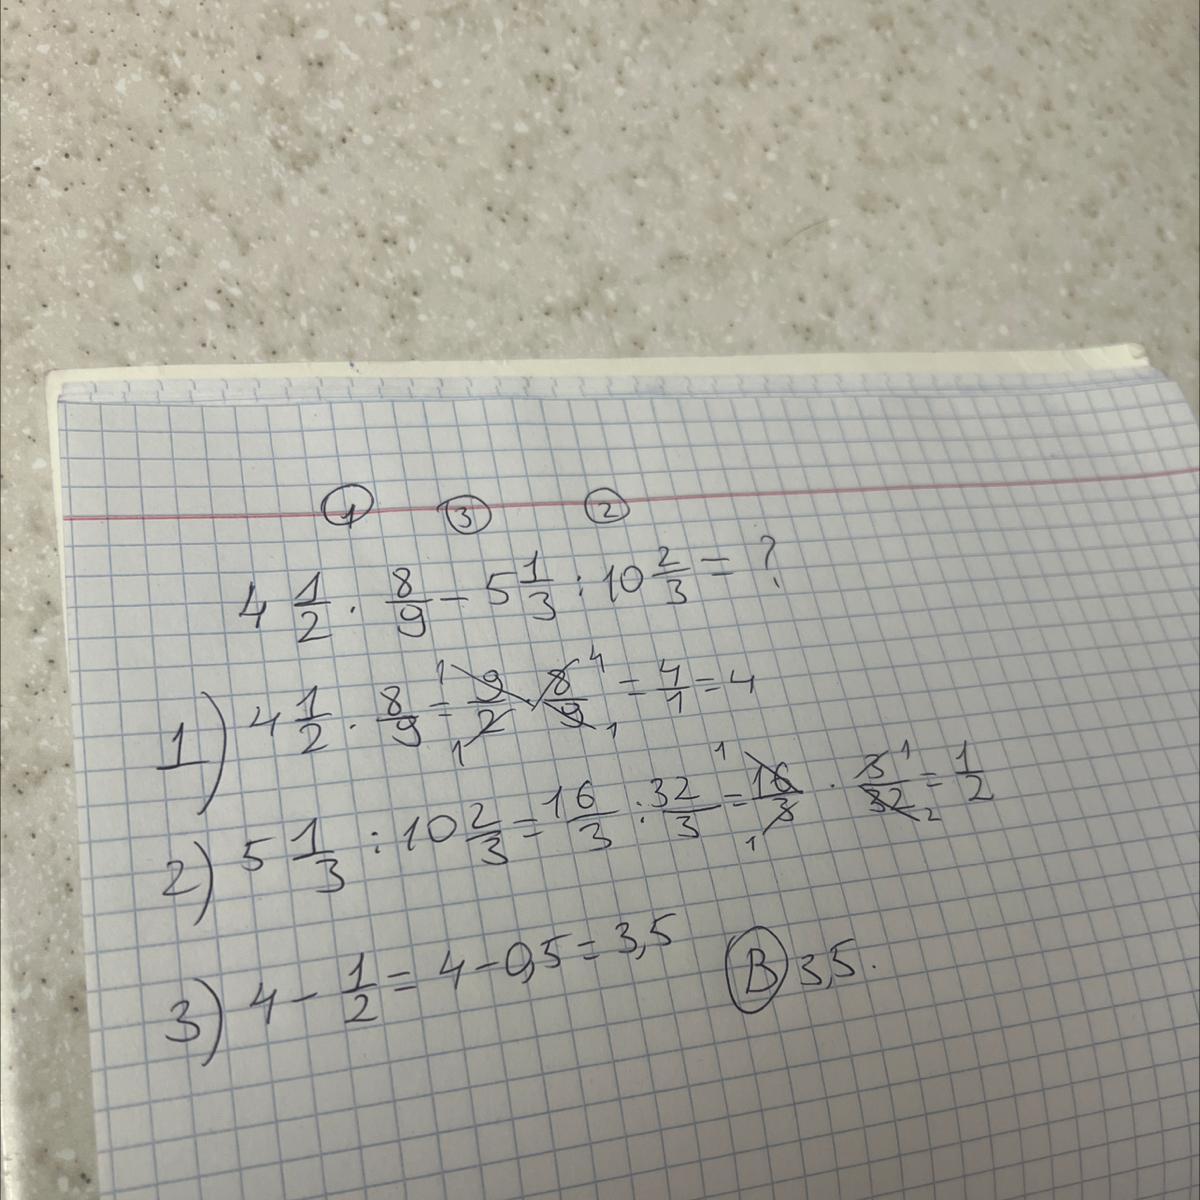 ① ③ ②
4 1/2 · 8/9 - 5 1/3 : 10 2/3 = ?
1) 4 1/2 · 8/9 = 9/2 · 8/9 = 4/1 = 4
2) 5 1/3 : 10 2/3 = 16/3 : 32/3 = 16/3 · 3/32 = 1/2
3) 4 - 1/2 = 4 - 0,5 = 3,5 B 3,5.